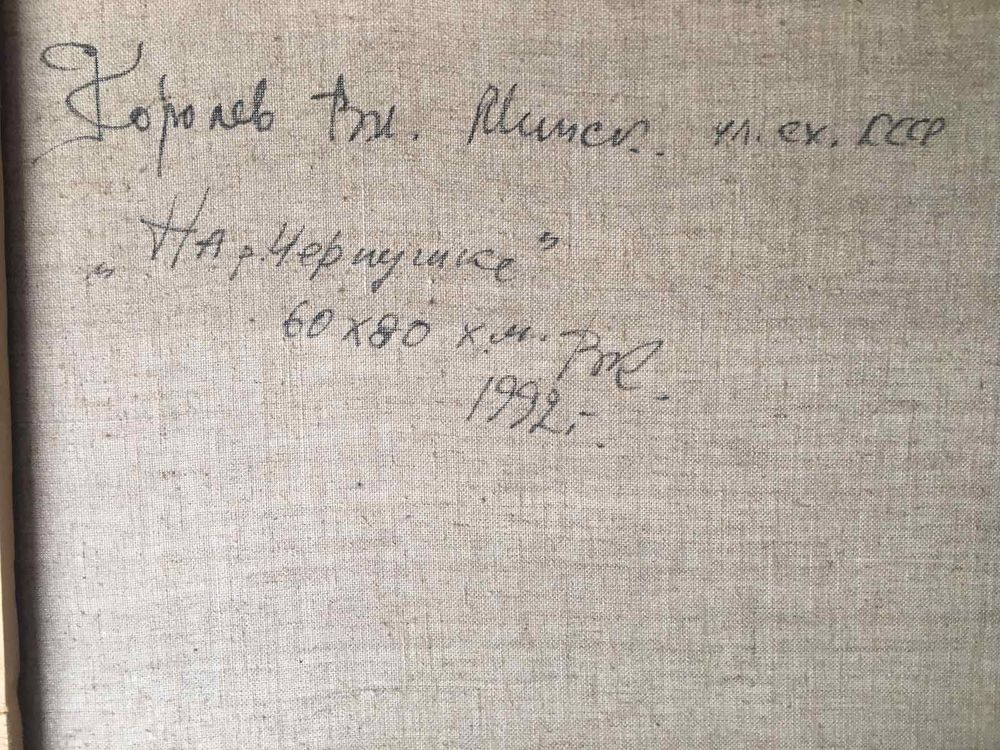 Королев Вл. Минск. чл. сх. СССР
„На р. Чернушке"
60 х 80 х.м.
1992 г.